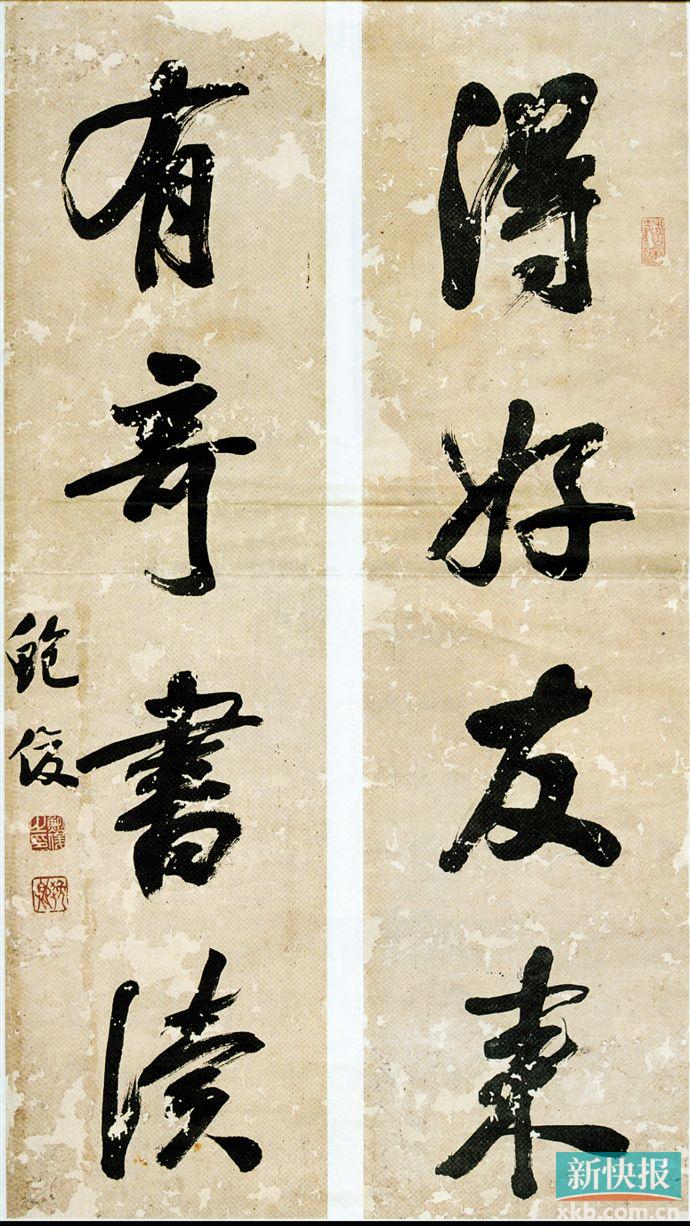 得好友来
有奇書讀
鲍俊
新快报
xkb.com.cn